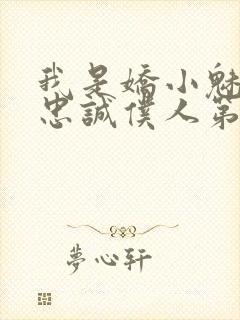 我是嬌小魅
忠誠僕人第
夢心軒